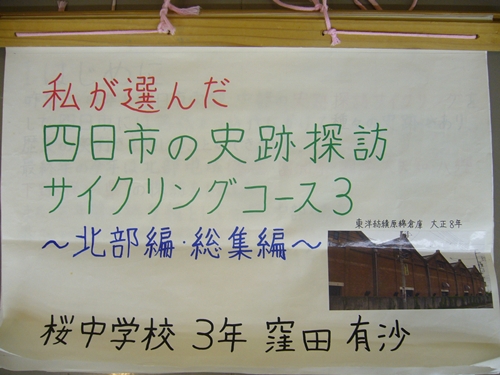 私が選んだ
四日市の史跡探訪
サイクリングコース3
東洋紡績原綿倉庫 大正8年
～北部編・総集編～
桜中学校 3年 窪田 有沙